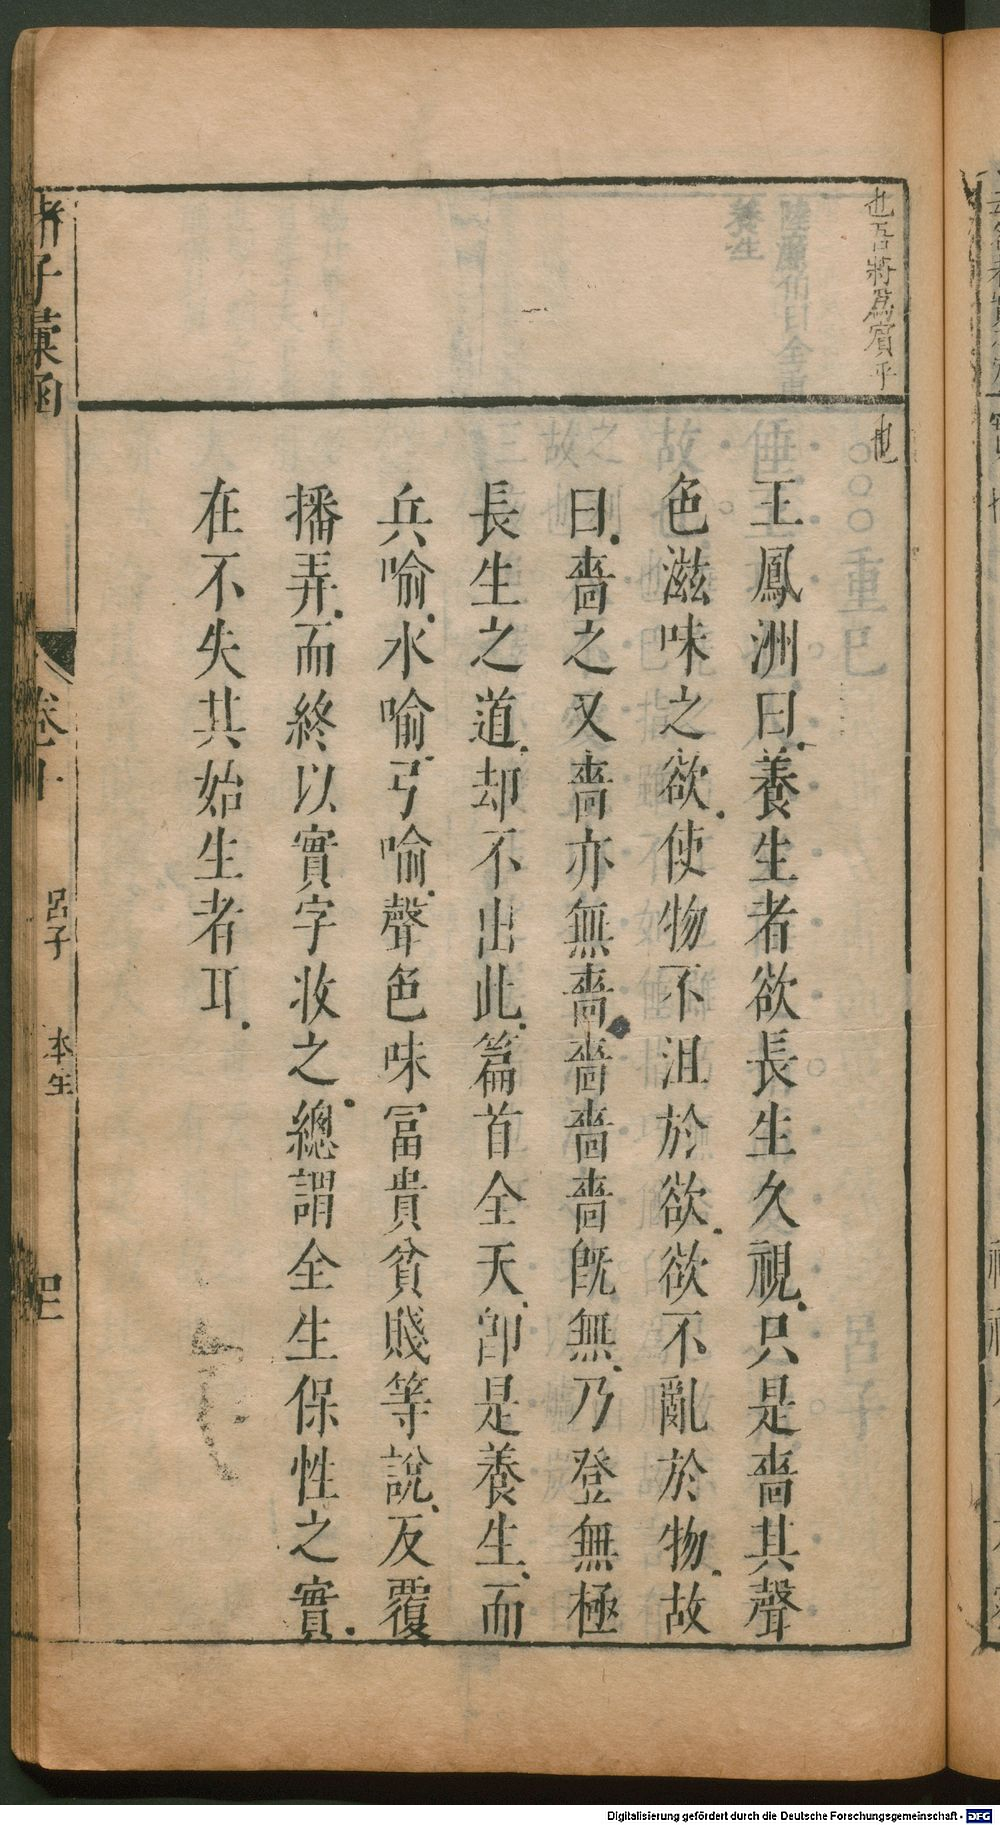 也吾將爲賓乎
也
王鳳洲曰養生者欲長生久視只是嗇其聲
色滋味之欲使物不沮於欲欲不亂於物故
曰嗇之又嗇亦無嗇嗇嗇嗇旣無乃登無極
長生之道却不出此篇首全天卽是養生而
兵喻水喻弓喻聲色味冨貴貧賤等說反覆
播弄而終以實字收之總謂全生保性之實
在不失其始生者耳
諸子彙函
卷十
呂子
本生
四
Digitalisierung gefördert durch die Deutsche Forschungsgemeinschaft - DFG